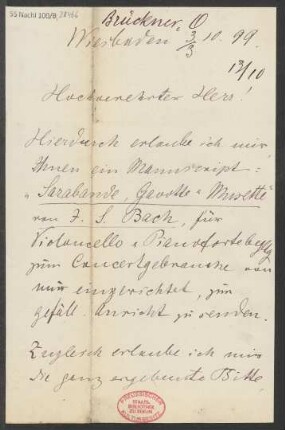 55 Nachl 100/B,
Brückner, O
Wiesbaden 3/3 10. 99.
13/10
Hochverehrter Herr!
Hierdurch erlaube ich mir
Ihnen ein Manuscript:
"Sarabande, Gavotte u Musette"
von J. S. Bach, für
Violoncello u Pianofortebegltg
zum Concertgebrauche von
mir eingerichtet, zur
gefäll. Ansicht zu senden.
Zugleich erlaube ich mir
die ganz ergebenste Bitte,